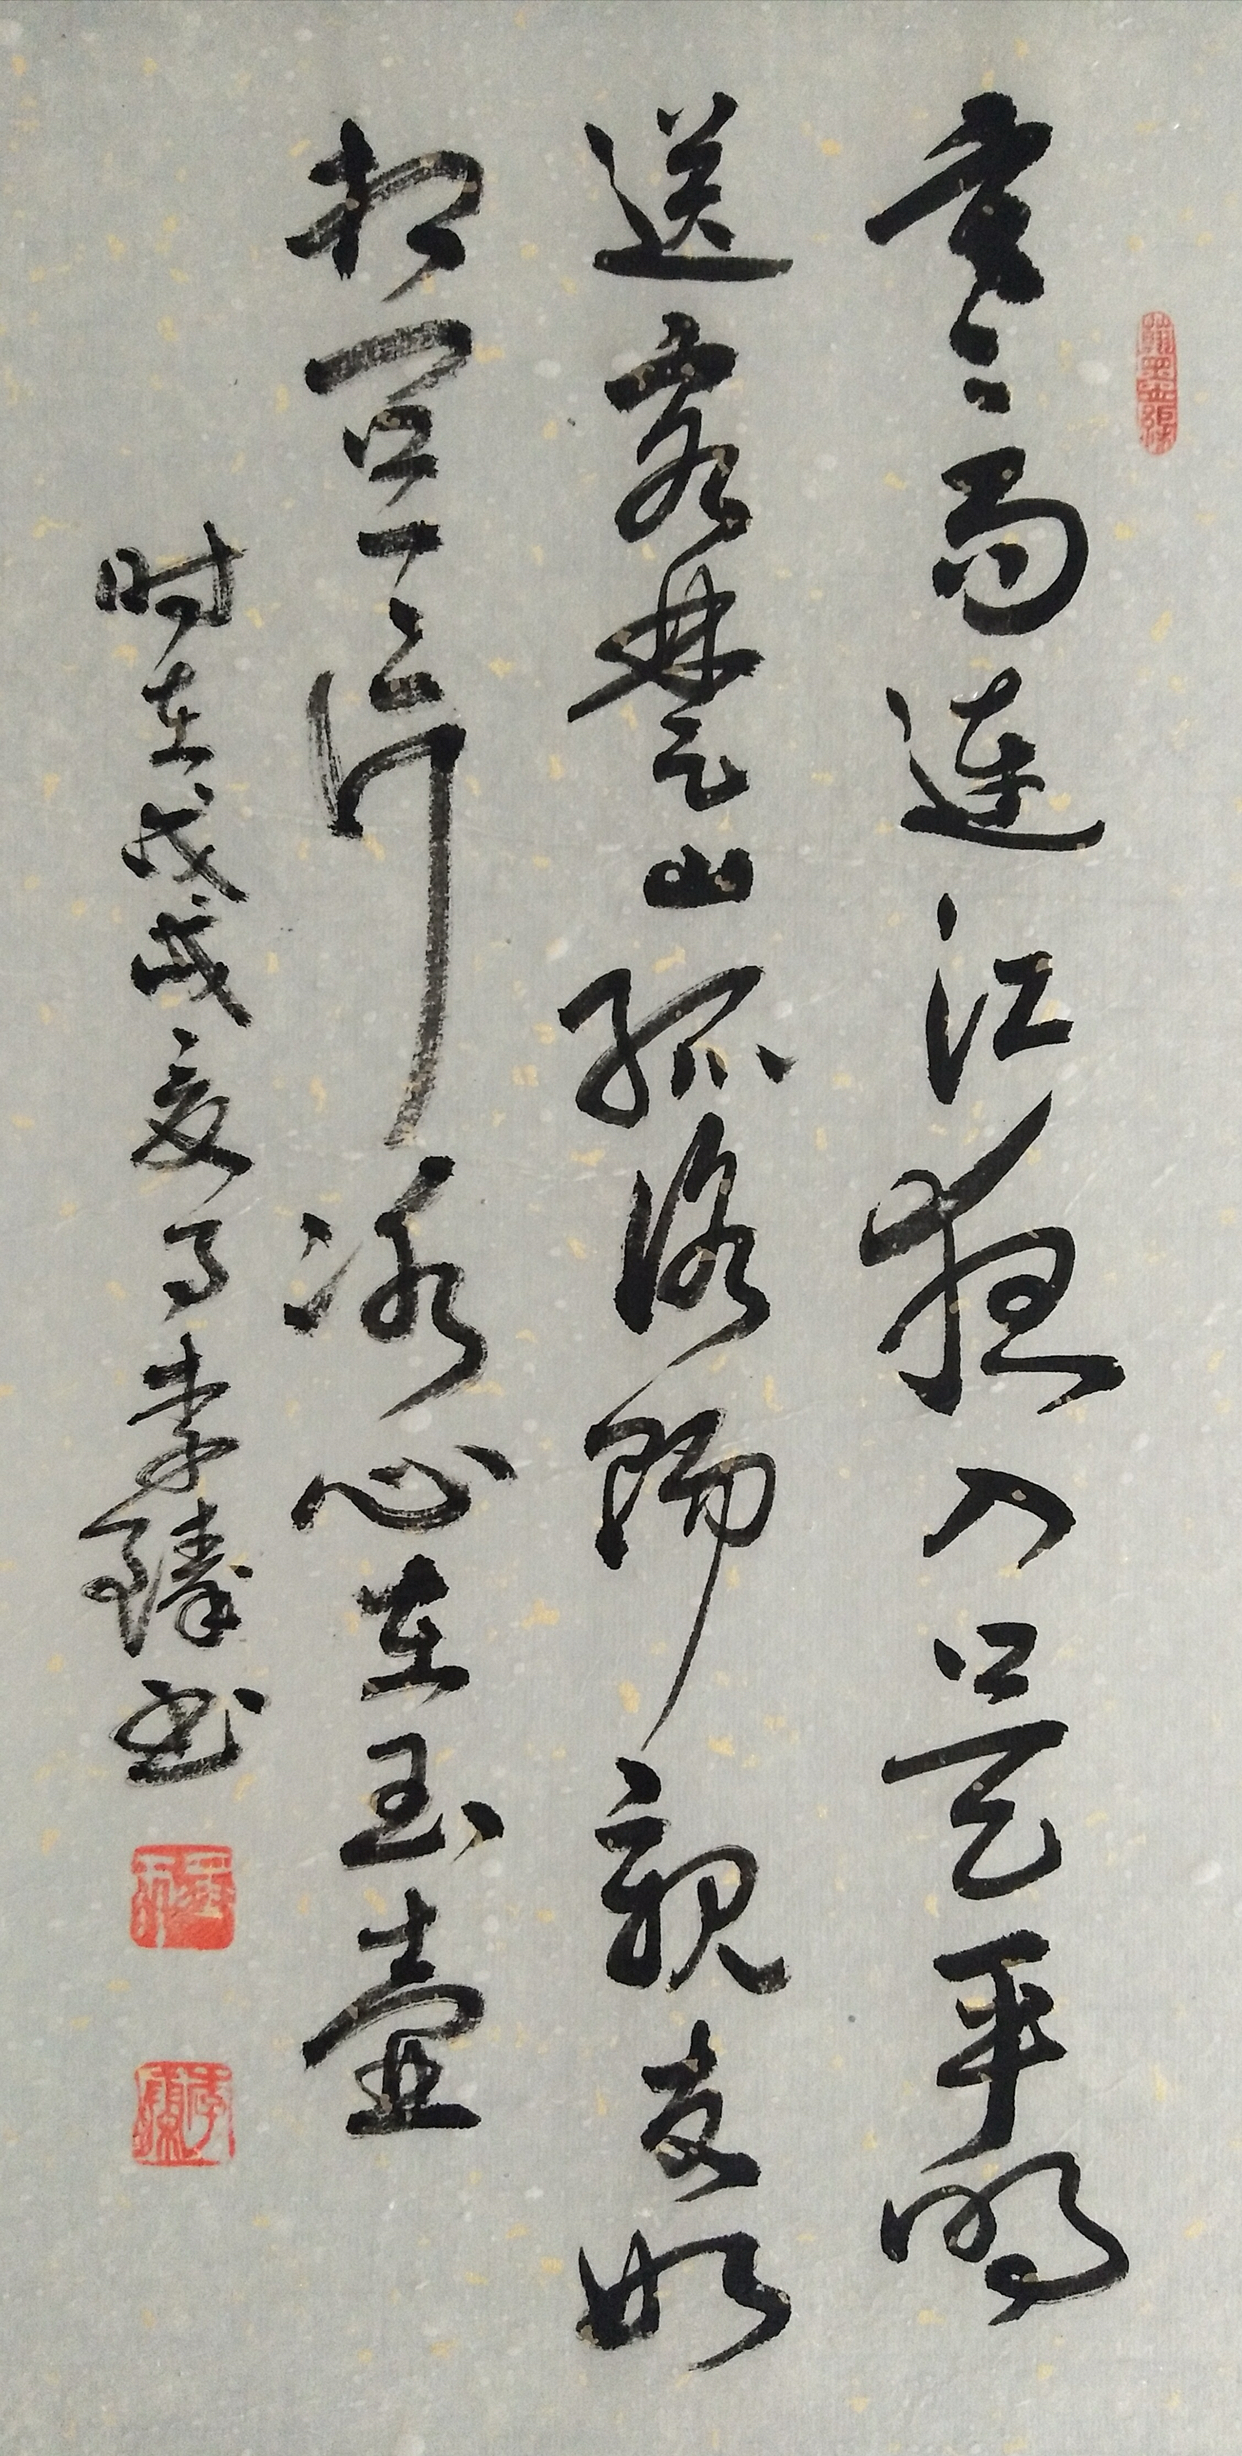 寒雨連江夜入吴平明
送客楚山孤洛陽親友如
相問一片冰心在玉壺
时在戊戌夏月李臻书